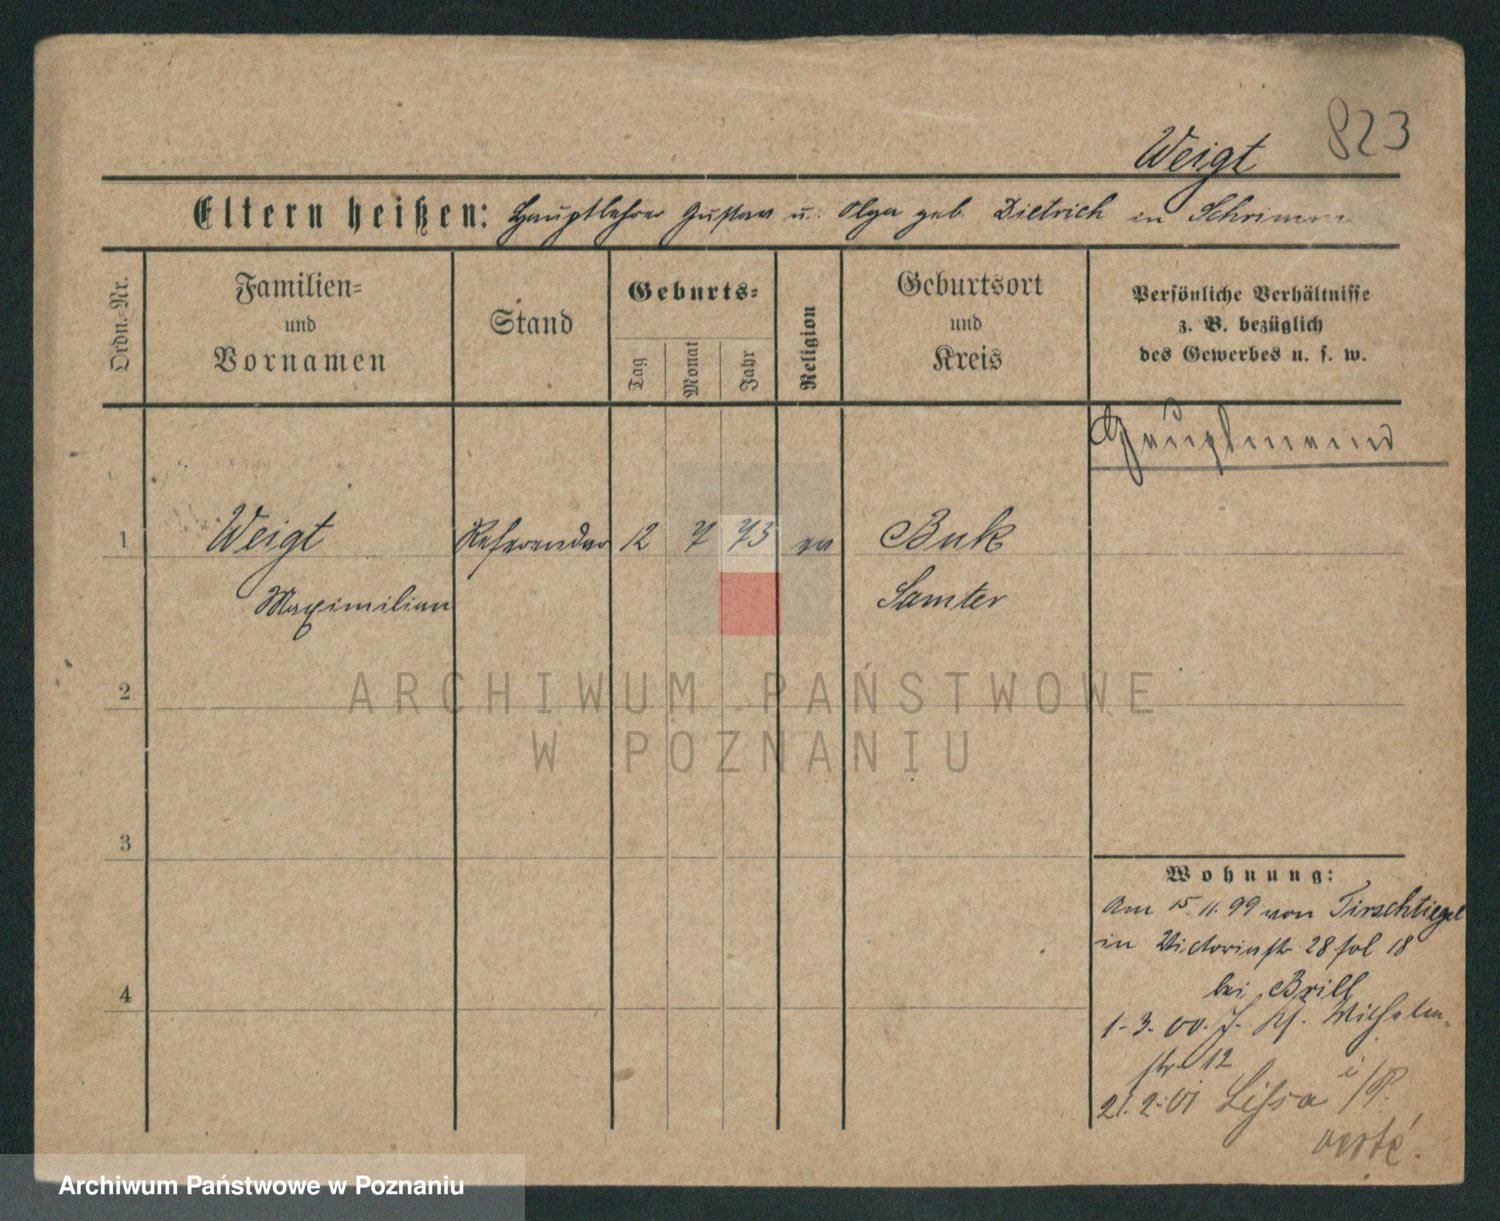 823
Weigt
Eltern heißen: Hauptlehrer Gustav u. Olga geb. Dietrich in Schrimm
Ordn.-Nr.
Familien-
und
Vornamen
Stand
Geburts-
Tag
Monat
Jahr
Religion
Geburtsort
und
Kreis
Persönliche Verhältnisse
z. B. bezüglich
des Gewerbes u. s. w.
1 Weigt Referendar 12 7 73 ev Buk
Maximilian Samter
2
3
4
Wohnung:
Am 15.11.99 von Tirschtiegel
in Victoriastr 28 fol 18
bei Brill
1-3-00. Wilhelm-
str 12
21.2.01 Lissa i/P.
ARCHIWUM PAŃSTWOWE
W POZNANIU
Archiwum Państwowe w Poznaniu